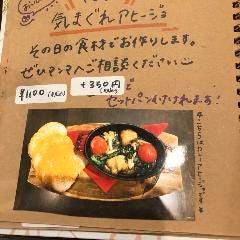 気まぐれアヒージョ
その日の食材でお作りします。
ぜひママへご相談ください
¥1100(税込)
+350円(税込)で
セットパン付けれます!